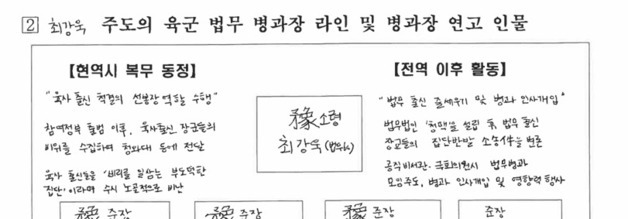 2 최강욱 주도의 육군 법무 병과장 라인 및 병과장 연고 인물
【현역시 복무 동정】
"육사 출신 척결의 선봉장 역할 수행"
참여정부 출범 이후, 육사출신 장군들의
비위를 수집하여 청와대 등에 전달
육사 출신들을 '비리를 일삼는 부도덕한
집단'이라며 수시 노골적으로 비난
豫 소령
최강욱(법무)
【전역 이후 활동】
"법무 출신 줄세우기 및 병과 인사개입"
법무법인 '청맥'을 설립 後, 법무 출신
장교들의 집단반발 소송사건을 변론
공직비서관·국회의원시 법무병과
모임주도, 병과 인사개입 및 영향력 행사
豫 준장
豫 준장
豫 준장
준장